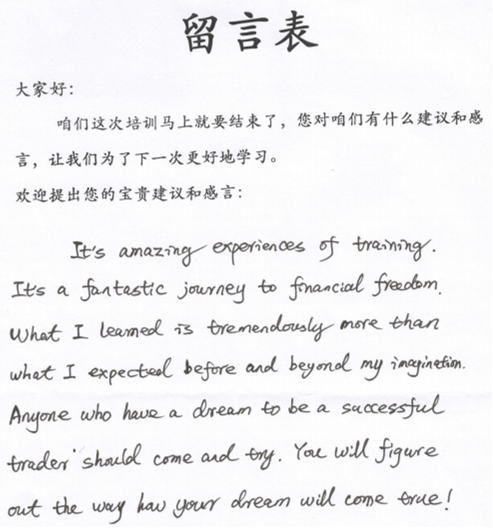 留言表
大家好：
咱们这次培训马上就要结束了，您对咱们有什么建议和感
言，让我们为了下一次更好地学习。
欢迎提出您的宝贵建议和感言：
It's amazing experiences of training.
It's a fantastic journey to financial freedom.
What I learned is tremendously more than
what I expected before and beyond my imagination.
Anyone who have a dream to be a successful
trader should come and try. You will figure
out the way how your dream will come true!